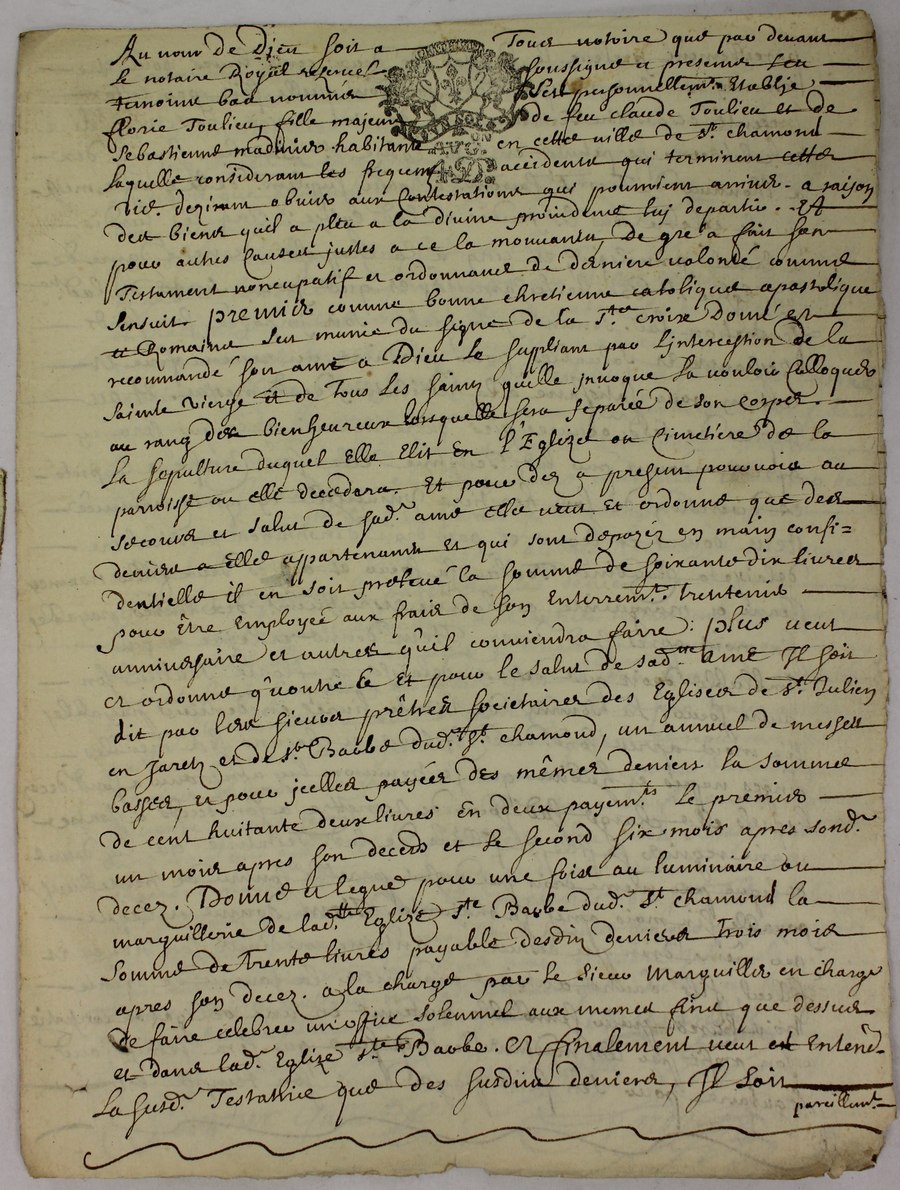 Au nom de Dieu soit a Tous notoire que par devant
le notaire Royal reservé soussigné et presence des
temoins bas nommés s'est personnellemt. Etablie
florie Toulieu, fille majeure de feu claude Toulieu et de
Sebastienne madinier habitante en cette ville de st. chamond
Laquelle considerant les frequents accidents qui terminent cette
vie, desirant obvier aux Contestations qui pourroient arriver a raison
des biens qu'il a pleu a la divine providence luy departir. Et
pour autres Causes justes a ce la mouvants, De gré a fait son
Testament noncupatif et ordonnance de derniere volonté comme
s'ensuit. premier comme bonne chretienne catolique apostolique
et Romaine s'est munie du signe de la Ste. croix Donné et
recommandé son ame a Dieu Le supliant par L'intercession de la
sainte vierge et de Tous Les saints quelle invoque La vouloir Colloquer
au rang des bienheureux lorsquelle sera separée de son Corps.
La sepulture duquel Elle Elit En l'Eglize ou Cimetiere de la
parroisse ou elle decedera. Et pour dez a present pourvoir au
secours et salut de sad. ame elle veut Et ordonne que des
deniers a Elle appartenants Et qui sont depozéz en main confi=
dentielle il en soit prelevé la somme de soixante dix livres
pour être Employée aux frais de son Enterremt. trentenier
anniversaire et autres qu'il conviendra faire: plus veut
et ordonne qu'outre ce Et pour le salut de sad. ame Il soit
dit par les sieurs prêtres societaires des Eglises de st. Julien
en Jarez et de ste. Barbe dud. st. chamond, un annuel de messes
basses, et pour jcelles payées des mêmes deniers la somme
de cent huitante deux livres en deux payemts. Le premier
un mois apres son decedz et le second six mois apres sond.
decez. Donne et legue pour une fois au luminaire ou
marguillerie de lad. Eglize ste Barbe dud. st chamond la
somme de Trente livres payable desdits deniers trois mois
apres son decez. a la charge par le sieur Marguillier en charge
de faire celebrer un office solemnel aux memes fins que dessus
et dans lad. Eglize ste Barbe. Et ffinalement veut et Entend
La susd. Testatrice que des susdits deniers, Il soit
pareillemt.